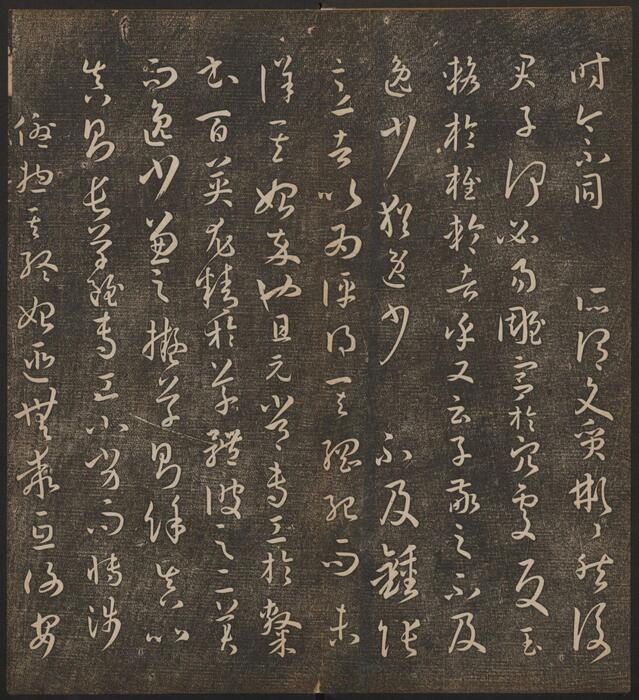 時今不同 所謂文質彬彬然後
君子何必易雕宮於穴處反玉
輅於椎輪者乎又云子敬之不及
逸少猶逸少 不及鍾張
意者以為評得其綱紀而未
詳其始卒也且元常專工於隸
書百英尤精於草體彼之二美
而逸少兼之擬草則餘真比
真則長草雖專工小劣而博涉
優惣其終始匪無乖互謝安